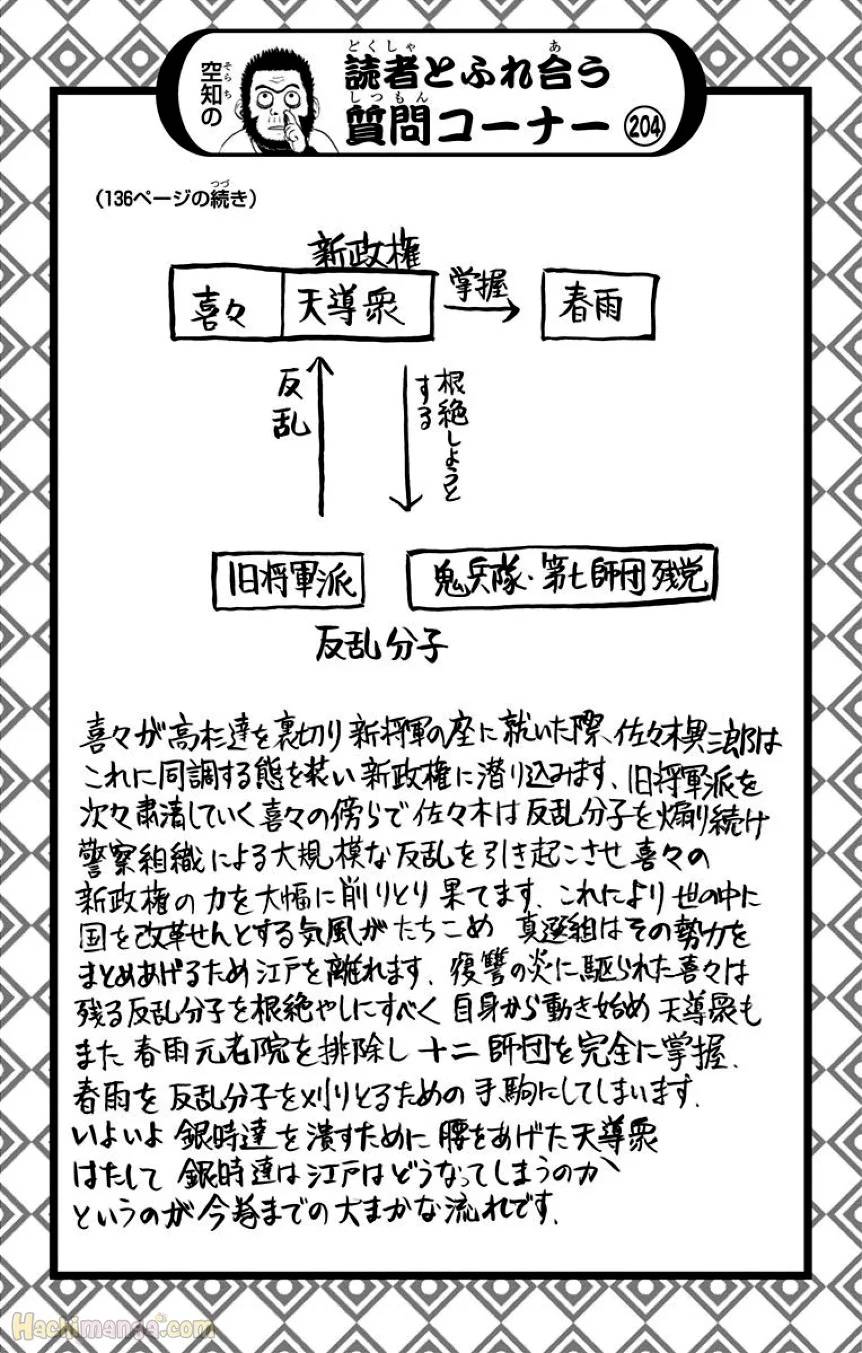 空知の
読者とふれ合う
質問コーナー 204
(136ページの続き)
新政権
喜々 天導衆 掌握 春雨
反乱
根絶しようと
する
旧将軍派 鬼兵隊・第七師団残党
反乱分子
喜々が高杉達を裏切り新将軍の座に就いた際、佐々木異三郎は
これに同調する態を装い新政権に潜り込みます、旧将軍派を
次々粛清していく喜々の傍らで佐々木は反乱分子を煽り続け
警察組織による大規模な反乱を引き起こさせ喜々の
新政権の力を大幅に削りとり果てます.これにより世の中に
国を改革せんとする気風がたちこめ 真選組はその勢力を
まとめあげるため江戸を離れます.復讐の炎に駆られた喜々は
残る反乱分子を根絶やしにすべく自身から動き始め天導衆も
また春雨元老院を排除し十二師団を完全に掌握.
春雨を反乱分子を刈りとるための手駒にしてしまいます.
いよいよ銀時達を潰すために腰をあげた天導衆
はたして銀時達は江戸はどうなってしまうのか、
というのが今巻までの大まかな流れです.
Hachimanga.com